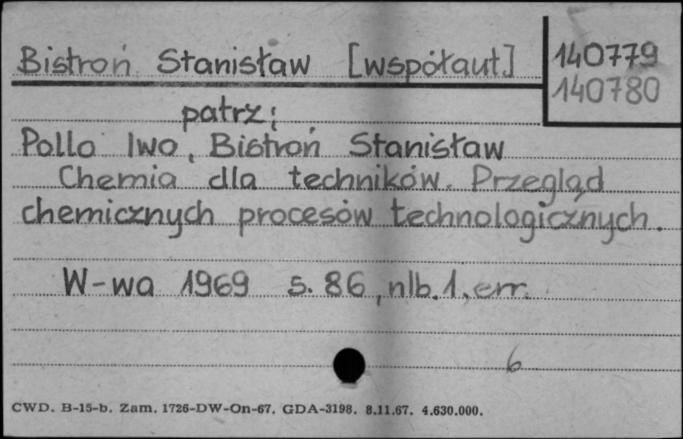 Bistroń Stanisław [współaut.] 140779
140780
patrz:
Pollo Iwo, Bistroń Stanisław
Chemia dla techników. Przegląd
chemicznych procesów technologicznych.
W-wa 1969 s. 86, nlb. 1, err.
6
CWD. B-15-b. Zam. 1726-DW-On-67. GDA-3198. 8.11.67. 4.630.000.